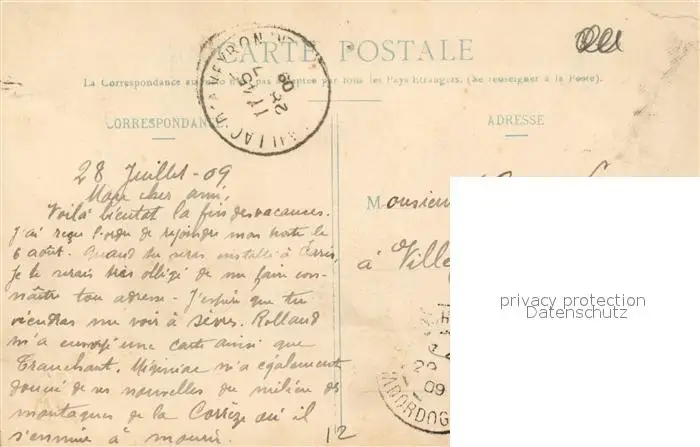 CARTE POSTALE
La Correspondance au verso n'est pas acceptée par tous les Pays Étrangers. (Se renseigner à la Poste).
CORRESPONDANCE
ADRESSE
28 Juillet - 09
Mon cher ami,
Voilà bientôt la fin des vacances.
J'ai reçu l'ordre de rejoindre mon poste le
6 août. Quand tu seras installé à
Je te serais très obligé de me faire con-
naître ton adresse - J'espère que tu
viendras me voir à Sèvres. Rolland
m'a envoyé une carte ainsi que
Tranchant. m'a également
donné de ses nouvelles du milieu des
montagnes de la Corrèze où il
s'ennuie à mourir.
12
Monsieur
à Ville
privacy protection
Datenschutz
AVEYRON
28
09
DORDOG
09